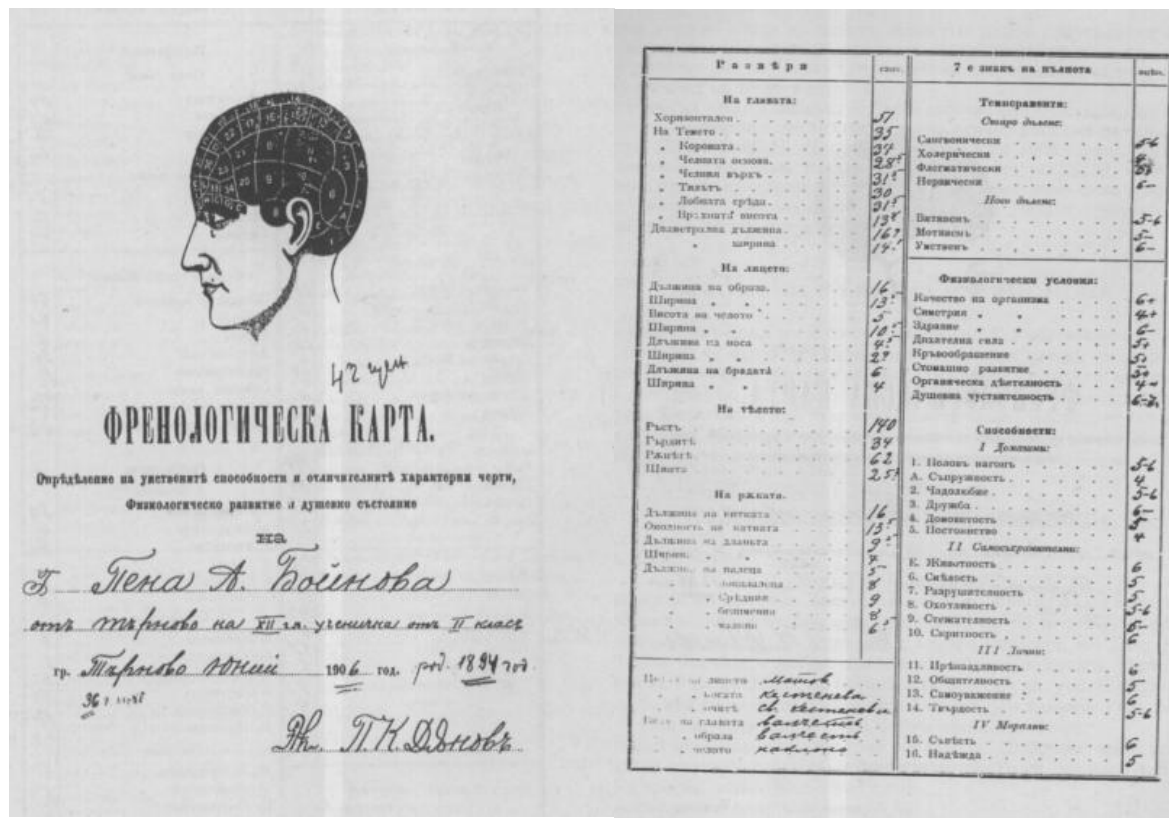 42 щен
ФРЕНОЛОГИЧЕСКА КАРТА.
Опрѣдѣление на умственитѣ способности и отличителнитѣ характерни черти,
Физиологическо развитие и душевно състояние
на
Г. Пена А. Бойнова
отъ Търново на XII г. ученичка отъ II класъ
гр. Търново Юний 1906 год. род. 1894 год.
36 г.
П. К. Дѫновъ
Размѣри
На главата:
Хоризонтално 57
На Темето 35
„ Короната 37
„ Челната основа 28
„ Челния върхъ 31
„ Тилътъ 30
„ Лобната срѣда 31
„ височа 13
Диаметрална дължина 16
„ ширина 14
На лицето:
Дължина на образа 16
Ширина „ „ 13
Висота на челото 5
Ширина „ „ 10
Длъжина на носа 4
Ширина „ „ 2
Длъжина на брадата 6
Ширина „ „ 4
На тѣлото:
Ръстъ 140
Гърдитѣ 34
Рѫцѣтѣ 62
Шията 25
На рѫката.
Дължина на китката 16
на китката 13
Дължина на дланьта 9
Ширин. „ „ 7
Дължин. на палеца 5
„ показалеца 8
„ Срѣдния 9
„ безимения 8
„ малкия 6
на лицето матов
„ косата кестенева
„ очитѣ св. кестеневи
на главата валчестъ
„ образа валчестъ
„ челото
7 е знакъ на пълнота
Темпераменти:
Старо дѣление:
Сангвонически 5-6
Холерически
Флегматически
Нервически 6–
Ново дѣление:
Виталенъ 5-6
Мотивенъ 5–
Умственъ 6–
Физиологически условия:
Качество на организма 6+
Симетрия „ „ 4+
Здравие „ „ 6–
Дихателна сила 5+
Кръвообращение 5+
Стомашно развитие 5+
Органическа дѣятелность 4
Душевна чуствителность 6-7
Способности:
I Домашни:
1. Половъ нагонъ 5-6
А. Съпружность 4
2. Чадолюбие 5-6
3. Дружба 6–
4. Домовитость
5. Постоянство 4
II Самосъхранителни:
Е. Животность 6
6. Смѣлость 5
7. Разрушителность 5
8. Охотливость 5-6
9. Стежателность 5
10. Скритность 5
III Лични:
11. Прѣпазливость 6
12. Общителность 5
13. Самоуважение 6
14. Твърдость 5-6
IV Морални:
15. Съвѣсть 6
16. Надѣжда 5